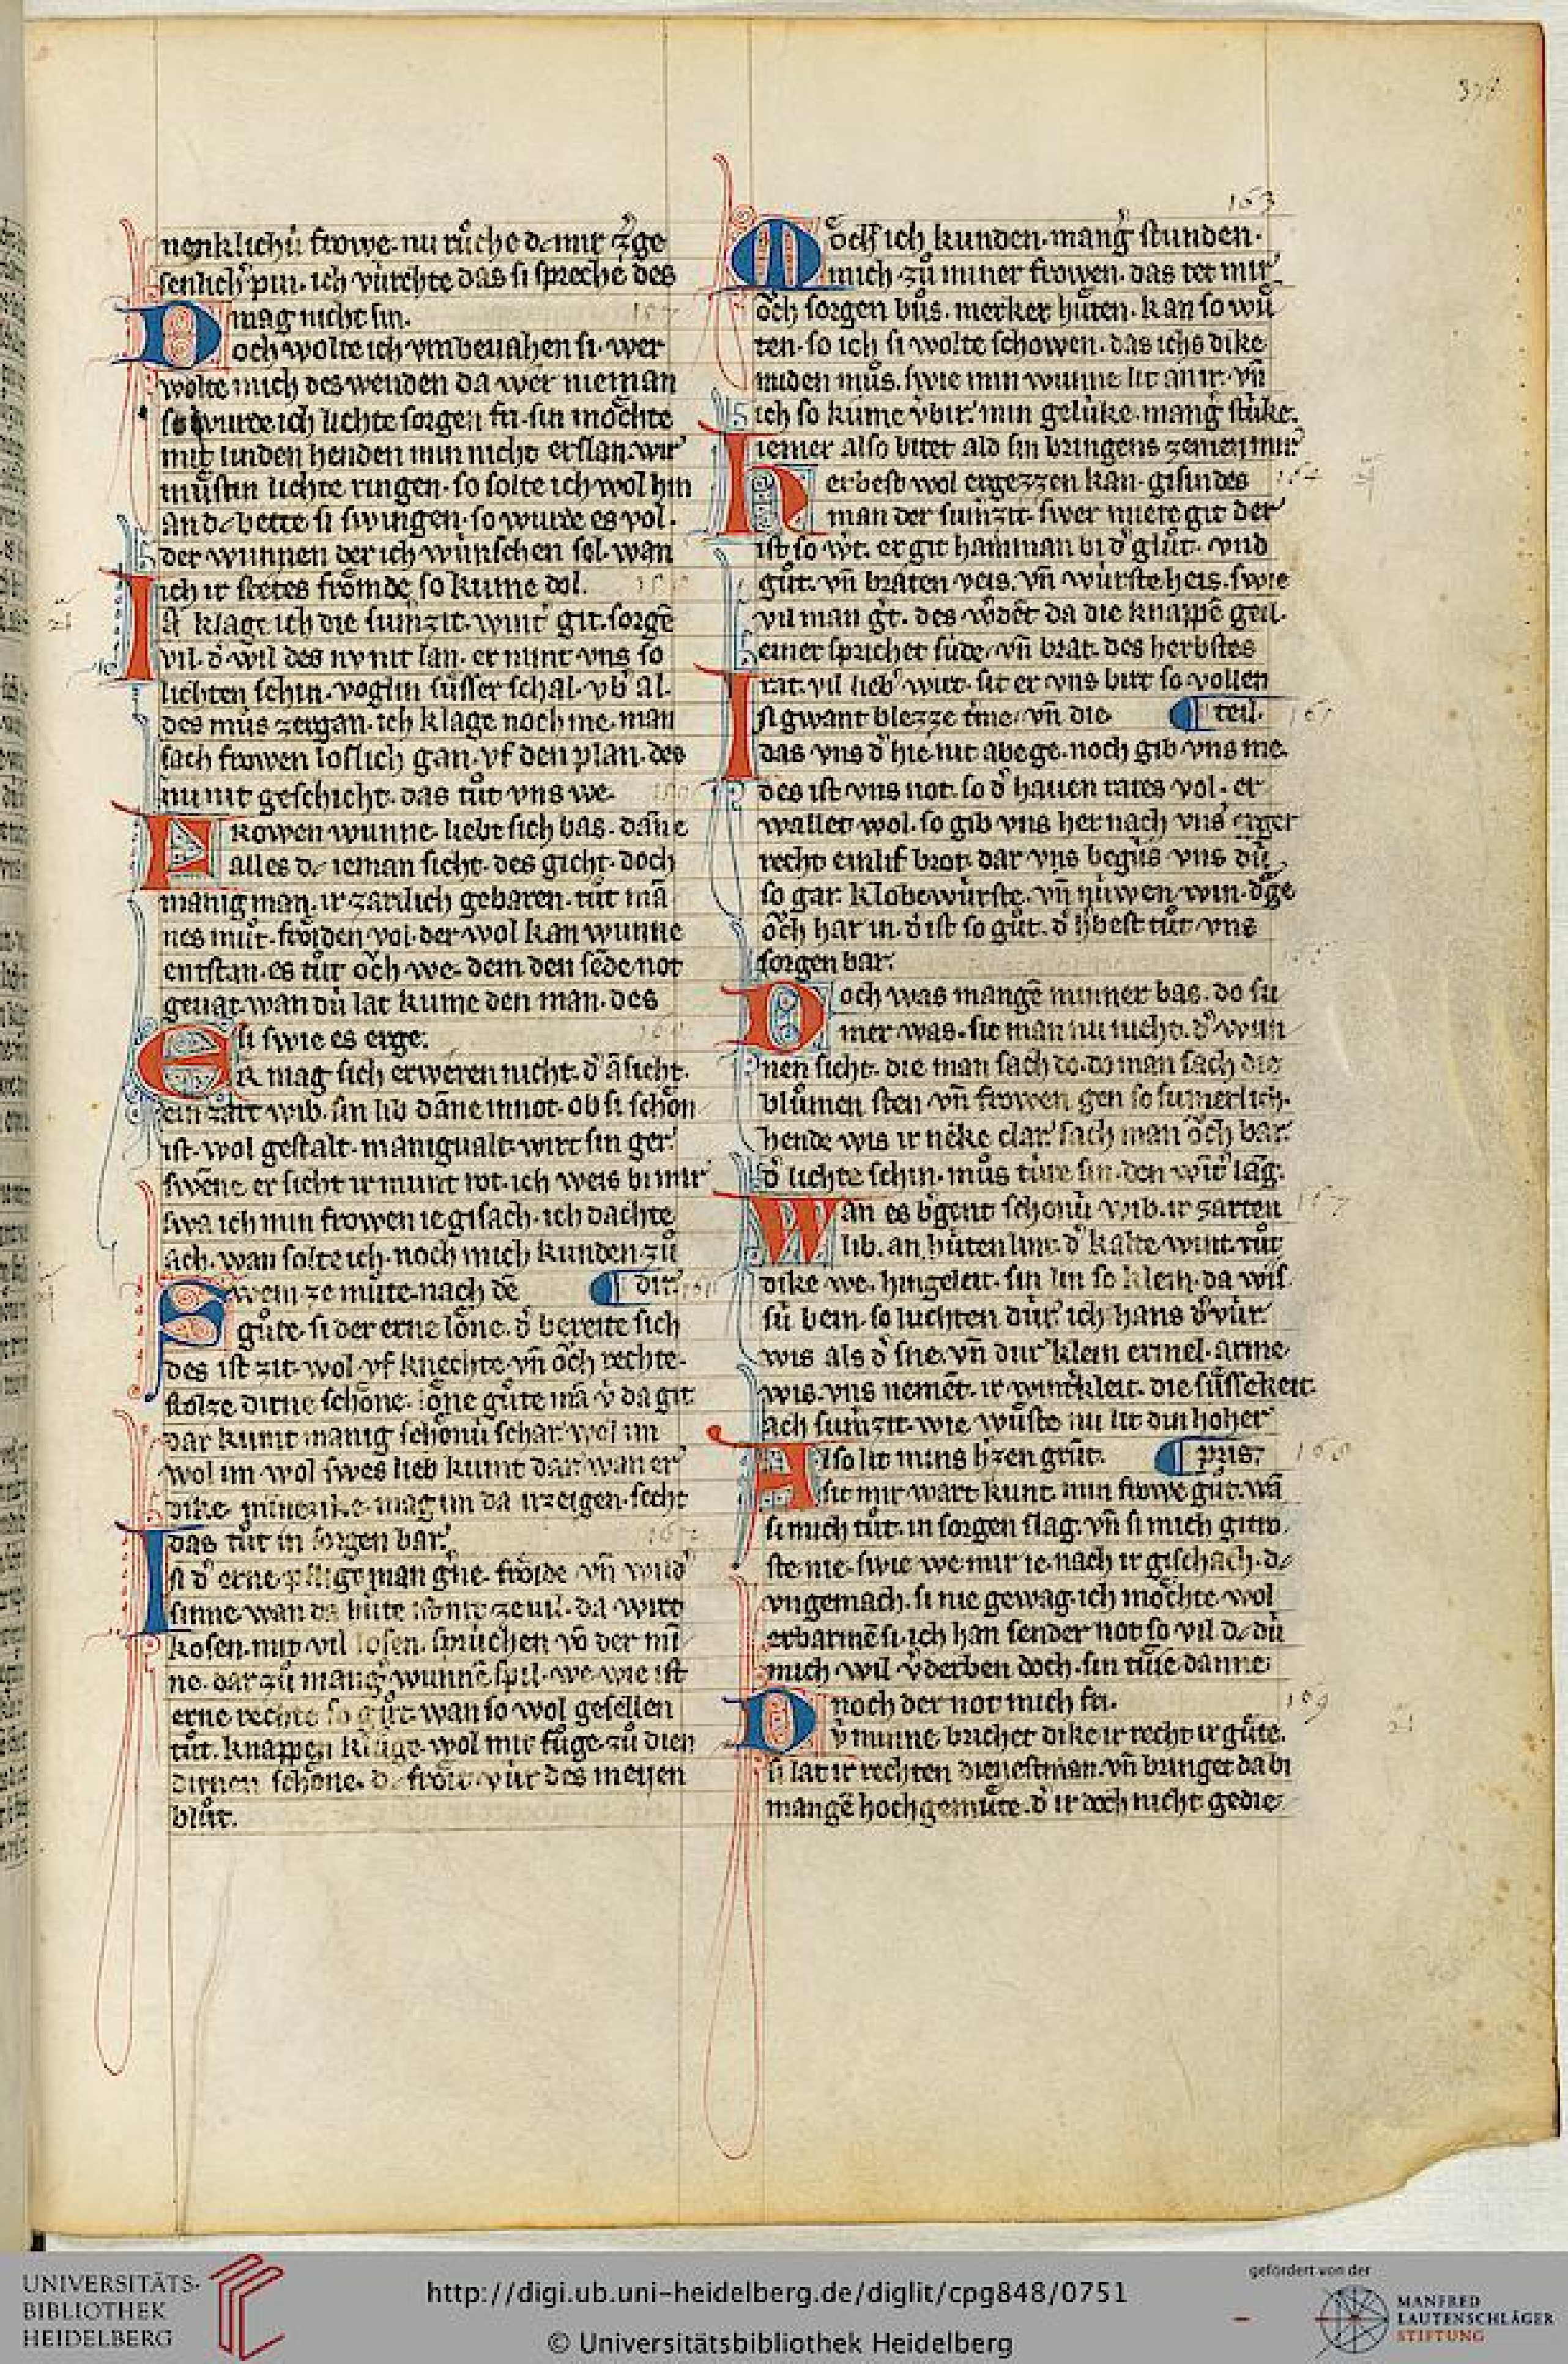 nenklichú frowe. nu růche dc mir zͤge
senlich pin. ich vúrchte das si spreche des
mag nicht sin.
Doch wolte ich vmbeuahen si. wer
wolte mich des wenden da wer nieman
so wurde ich lichte sorgen fri. sin mochte
mit linden henden min nicht erslan. wir
mustin lichte ringen. so solte ich wol hin
an dc bette si swingen. so wurde es vol.
der wunnen der ich wúnschen sol. wan
ich ir stetes frömde so kume dol.
Ist klage ich die sumzit. wint' git. sorgē
vil. d' wil des nv nit lan. er nimt vns so
liehten schin. voglin süsser schal. vb' al.
des můs zergan. ich klage noch me. man
sach frowen loslich gan. vf den plan. des
nu nit geschicht. das tůt vns we.
Frowen wunne. liebt sich bas. dāne
alles dc ieman sicht. des gicht. doch
manig man. ir zartlich gebaren. tůt mā
nes můt. fröiden vol. der wol kan wunne
entstan. es tůt öch we. dem den sēde not
geuat. wan dú lat kume den man. des
si swie es erge.
Er mag sich erweren nicht. d' āsicht.
ein zart wib. sin lib dāne in not. ob si schön
ist. wol gestalt. manigualt. wirt sin ger.
swēne er sicht ir munt rot. ich weis bi mir
swa ich min frowen ie gisach. ich dachte
ach. wan solte ich. noch mich kunden zů
dir.
Swem ze můte. nach dē
gůte. si der erne löne. d' bereite sich
des ist zit. wol vf knechte. vn̄ öch rechte.
stolze dirne schöne. löne gůte mā v' da git
dar kumt manig schönú schar. wol im
wol im wol swes lieb kumt dar. wan er
dike minerike. mag im da irzeigen. secht
das tůt in sorgen bar.
Ist d' erne pfligt man g'ne. fröide vn̄ wild'
sinne. wan da hůte kömt ze uil. da wirt
kosen. mit vil losen. sprúchen vō der mi
ne. dar zů manig' wunnē spil. we wie ist
erne rechte so gůt. wan so wol gesellen
tůt. knappen klůge. wol mit fůge. zů dien
dirnen schöne. dc fröit vúr des meijen
blůt.
163
Moechte ich kunden. mang' stunden.
mich. zů miner frowen. das tet mir
öch sorgen bůs. merker hůten. kan so wů
ten. so ich si wolte schowen. das ichs dike
miden můs. swie min wunne lit an ir. vn̄
ich so kume v'bir. min gelúke. mang' stúke.
iemer also bitet ald sin bringens zemen mir.
Herbest wol ergezzen kan. gisindes
man der sumzit. swer miete git der
ist so w't. er git hamman bi d' glůt. vnd
gůt. vn̄ braten veis. vn̄ wúrste heis. swie
vil man g't. des w'dēt da die knappē geil.
einer sprichet súde. vn̄ brat. des herbstes
rat. vil lieb' wirt. sit er vns birt so vollen
teil.
Ist gwant blezze tíne. vn̄ die
das vns d' hie. nit abe ge. noch gib vns me.
des ist vns not. so d' hauen rates vol. er
wallet wol. so gib vns her nach vns' erger
recht einlif brot. dar vns begús vns dú
so gar. klobewúrste. vn̄ núwen win. d'ge
öch har in. d' ist so gůt. d' h'best tůt vns
sorgen bar.
Doch was mangē minner bas. do su
mer was. sit man nu nicht. d' wun
nen sicht. die man sach do. do man sach die
blůmen sten vn̄ frowen gen so sumerlich.
hende wis ir neke clar. sach man öch bar.
d' lichte schin. můs túre sin. den wint' lāg.
Wan es b'gent schönú wib. ir zarten
lib. an hůten lint. d' kalte wint. tůt
dike we. hin geleit. sin lin so klein. da wis
sú bein. so luchten dúr. ich hans d' vúr.
wis als d' sne. vn̄ dur klein ermel. arme
wis. vns nemēt. ir wint'kleit. die süssekeit
ach sumzit. wie wůste nu lit din hoher
pris.
Also lit mins h'zen grůt.
sit mir wart kunt. min frowe gůt. wā
si mich tůt. in sorgen slag. vn̄ si mich gitro
ste nie. swie we mir ie. nach ir gischach. dc
vngemach. si nie gewag. ich möchte wol
erbarmē si. ich han sender not so vil. dc dú
mich wil v'derben doch. sin túie danne
noch der not mich fri.
Dú minne brichet dike ir recht ir gůte.
si lat ir rechten dienestman. vn̄ bringet da bi
mangē hochgemůte. d' ir doch nicht gedie
UNIVERSITÄTS-
BIBLIOTHEK
HEIDELBERG
http://digi.ub.uni-heidelberg.de/diglit/cpg848/0751
© Universitätsbibliothek Heidelberg
gefördert von der
MANFRED
LAUTENSCHLÄGER
STIFTUNG